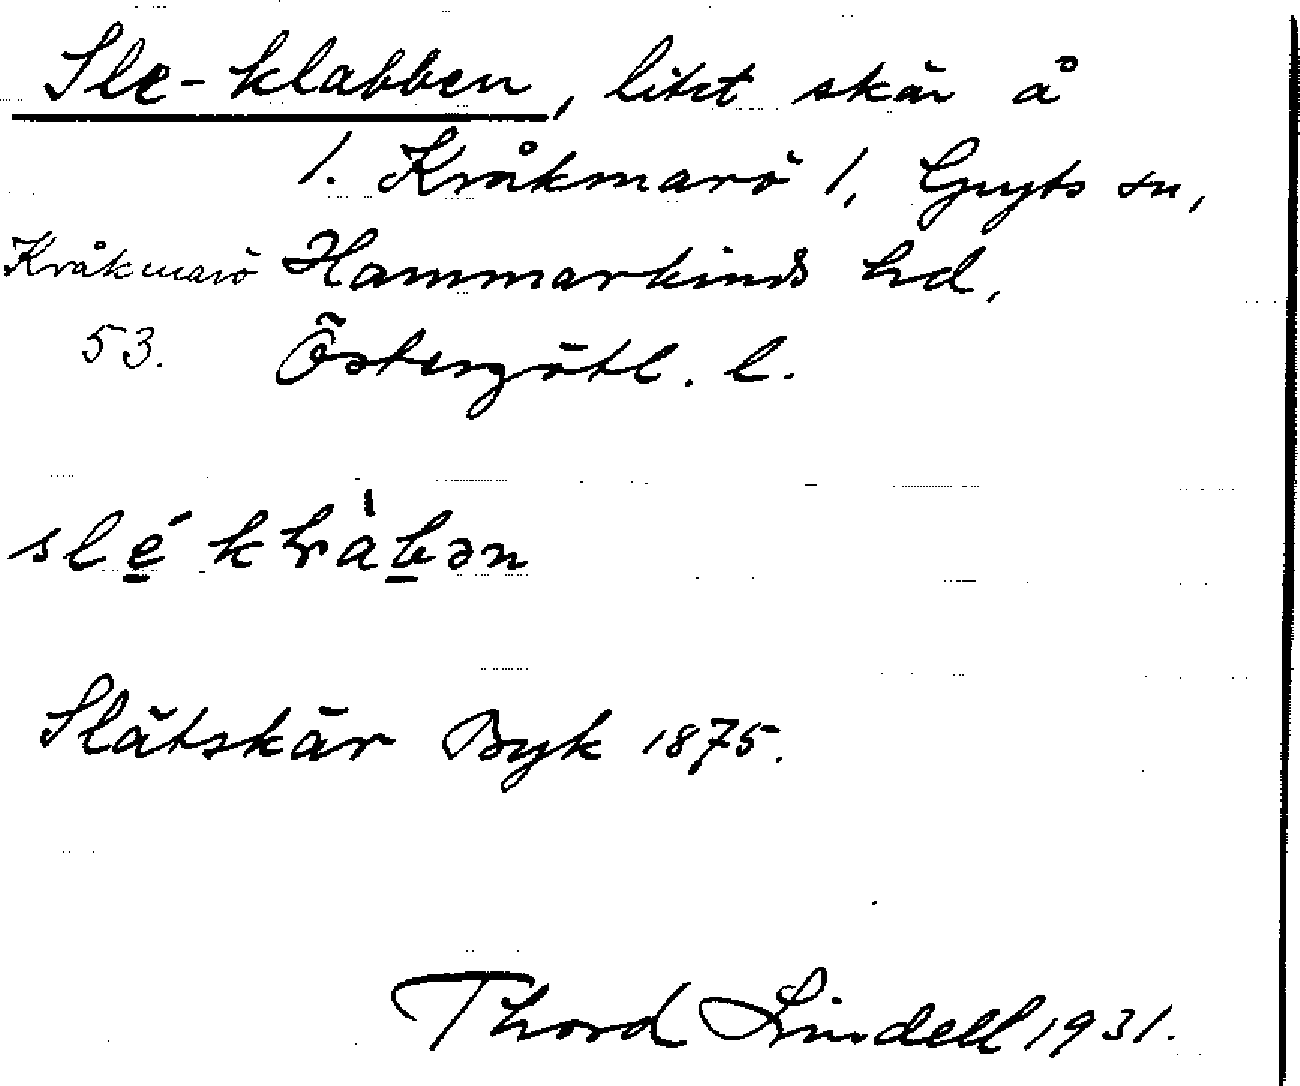 Sle-klabben, litet skär å
1. Kråkmarö 1, Gryts sn,
Kråkmarö Hammarkinds hd,
53. Östergötl. l.
slé klàbən
Slätskär Byk 1875.
Thord Lindell 1931.